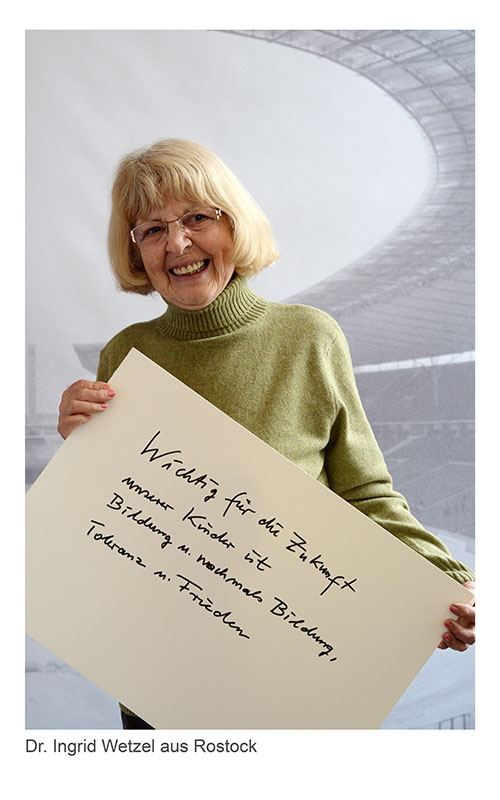 Wichtig für die Zukunft
unserer Kinder ist
Bildung u. nochmals Bildung,
Toleranz u. Frieden
Dr. Ingrid Wetzel aus Rostock